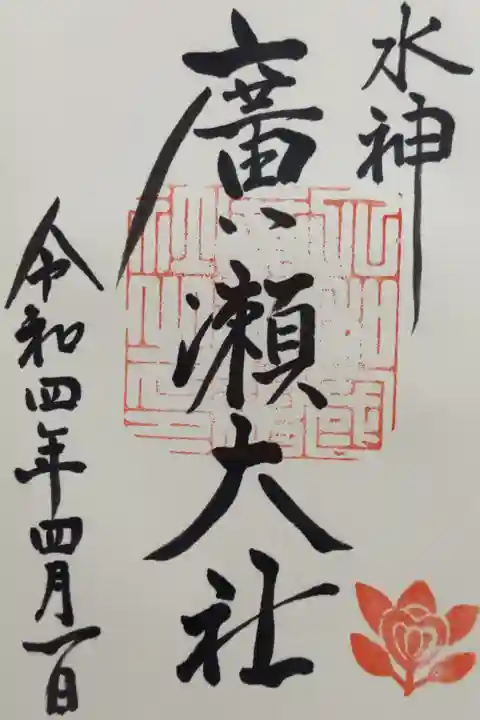 水神
廣瀬大社
令和四年四月一日